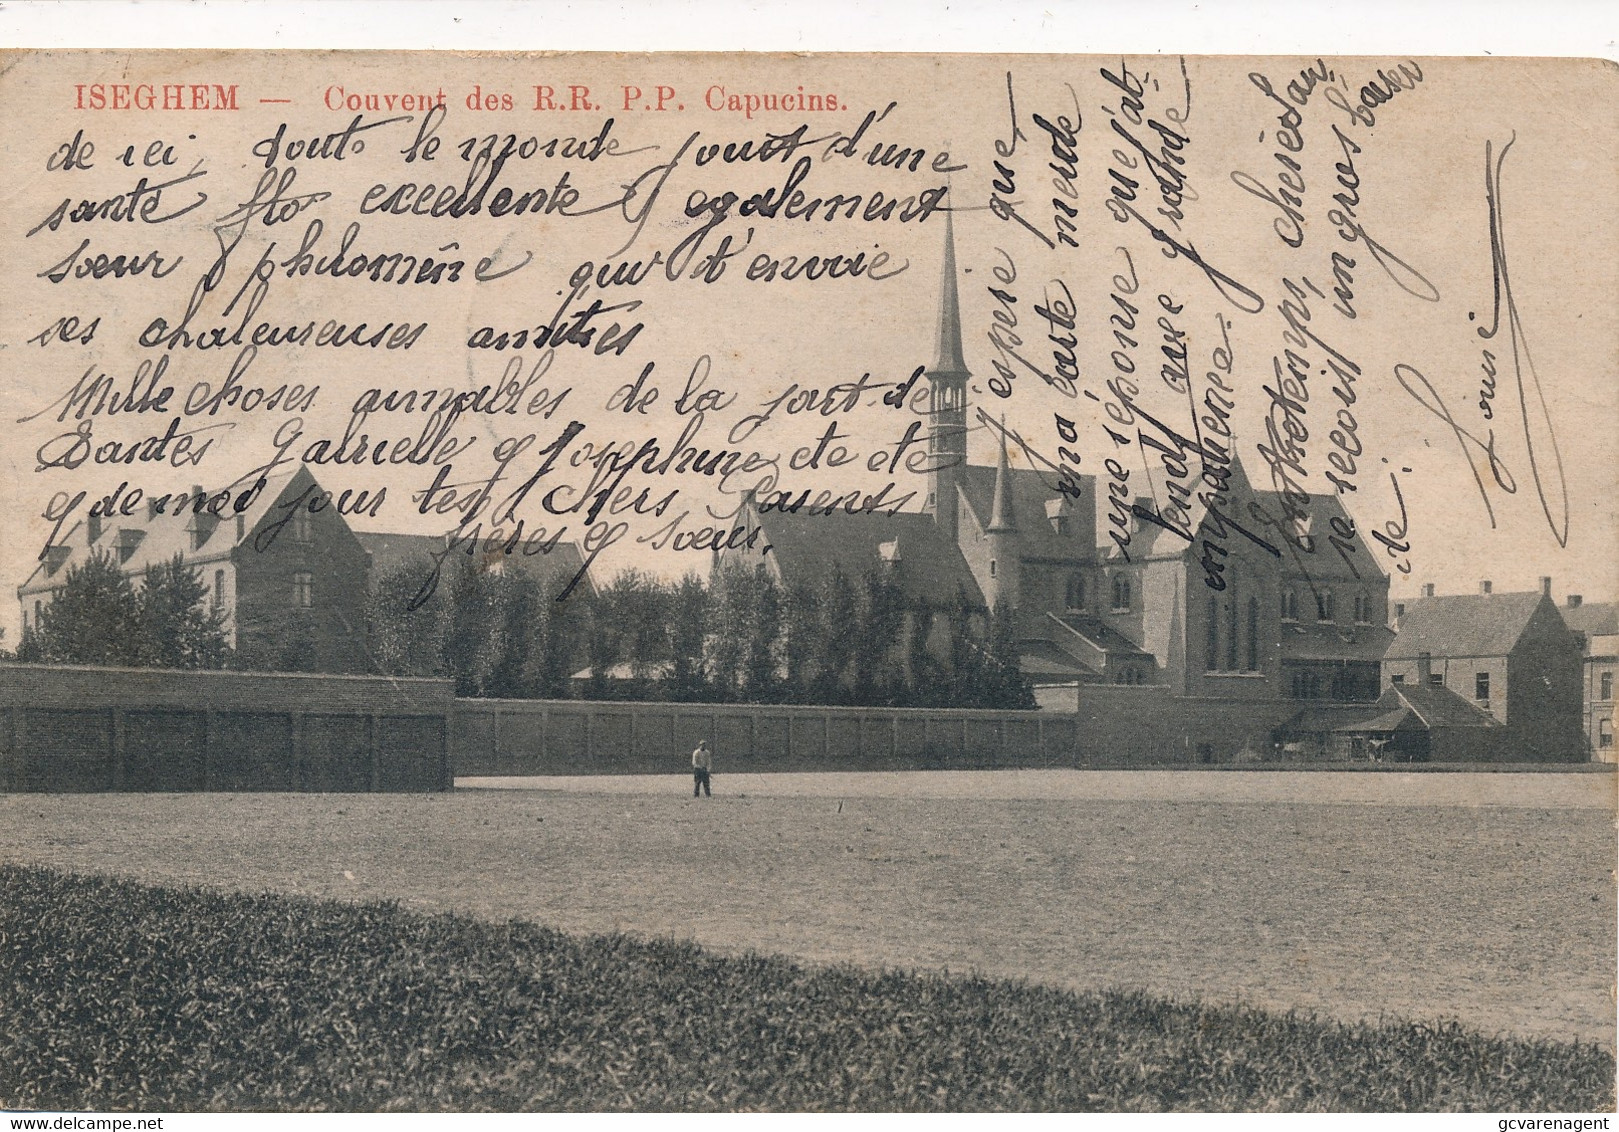 ISEGHEM — Couvent des R.R. P.P. Capucins.
de ici, toute le monde jouit d'une
santé excellente & egalement
sœur philomène qui t'envoie
ses chaleureuses amitiés
Mille choses aimables de la part de
Tantes Gabrielle & Josephine etc etc
& de moi pour tes chers Parents
frères & sœurs.
j'espère que
ma carte merde
une réponse que j'at-
tends avec grande
impatience.
Entretemps, cherie
recois un gros baiser
de.
Louise
gcvarenagent